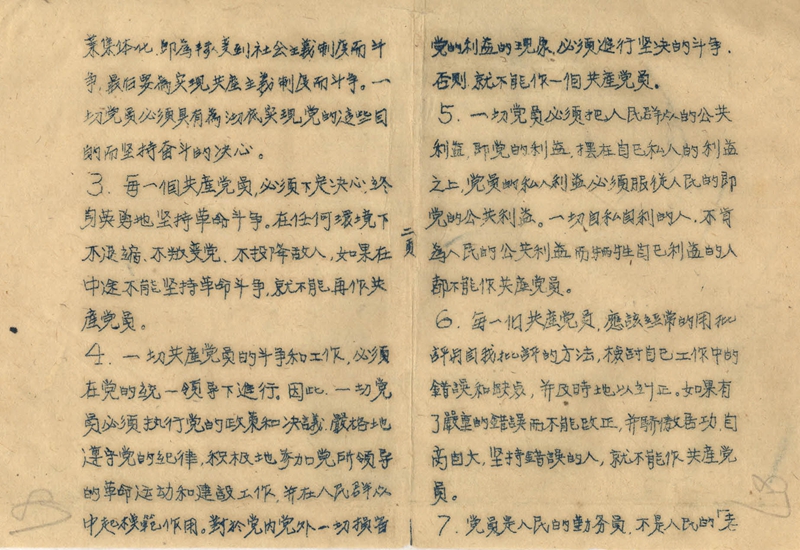 業集体化,即為转変到社会主義制度而斗
争,最后要為实现共產主義制度而斗争。一
切党员必须具有為澈底实现党的这些目
的而坚持奋斗的决心。
3. 每一個共產党员,必须下定决心,終
身英勇地坚持革命斗争。在任何環境下
不退縮、不叛変党、不投降敌人,如果在
中途不能坚持革命斗争,就不能再作共
產党员。
4. 一切共產党员的斗争和工作,必须
在党的統一领导下進行。因此,一切党
员必须执行党的政策和决議,嚴格地
遵守党的纪律,积极地参加党所领导
的革命运动和建設工作,并在人民群众
中起模範作用。對於党内党外一切損害
二頁
党的利益的现象,必须進行坚决的斗争,
否则,就不能作一個共產党员。
5. 一切党员必须把人民群众的公共
利益,即党的利益,摆在自己私人的利益
之上,党员的私人利益必须服從人民的即
党的公共利益。一切自私自利的人,不肯
為人民的公共利益而牺牲自己利益的人
都不能作共產党员。
6. 每一個共產党员,應該經常的用批
評与自我批評的方法,檢討自己工作中的
錯誤和缺点,并及時地加以纠正。如果有
了嚴重的錯誤而不能改正,并驕傲居功,自
高自大,坚持錯誤的人,就不能作共產党
员。
7. 党员是人民的勤务员,不是人民的「老